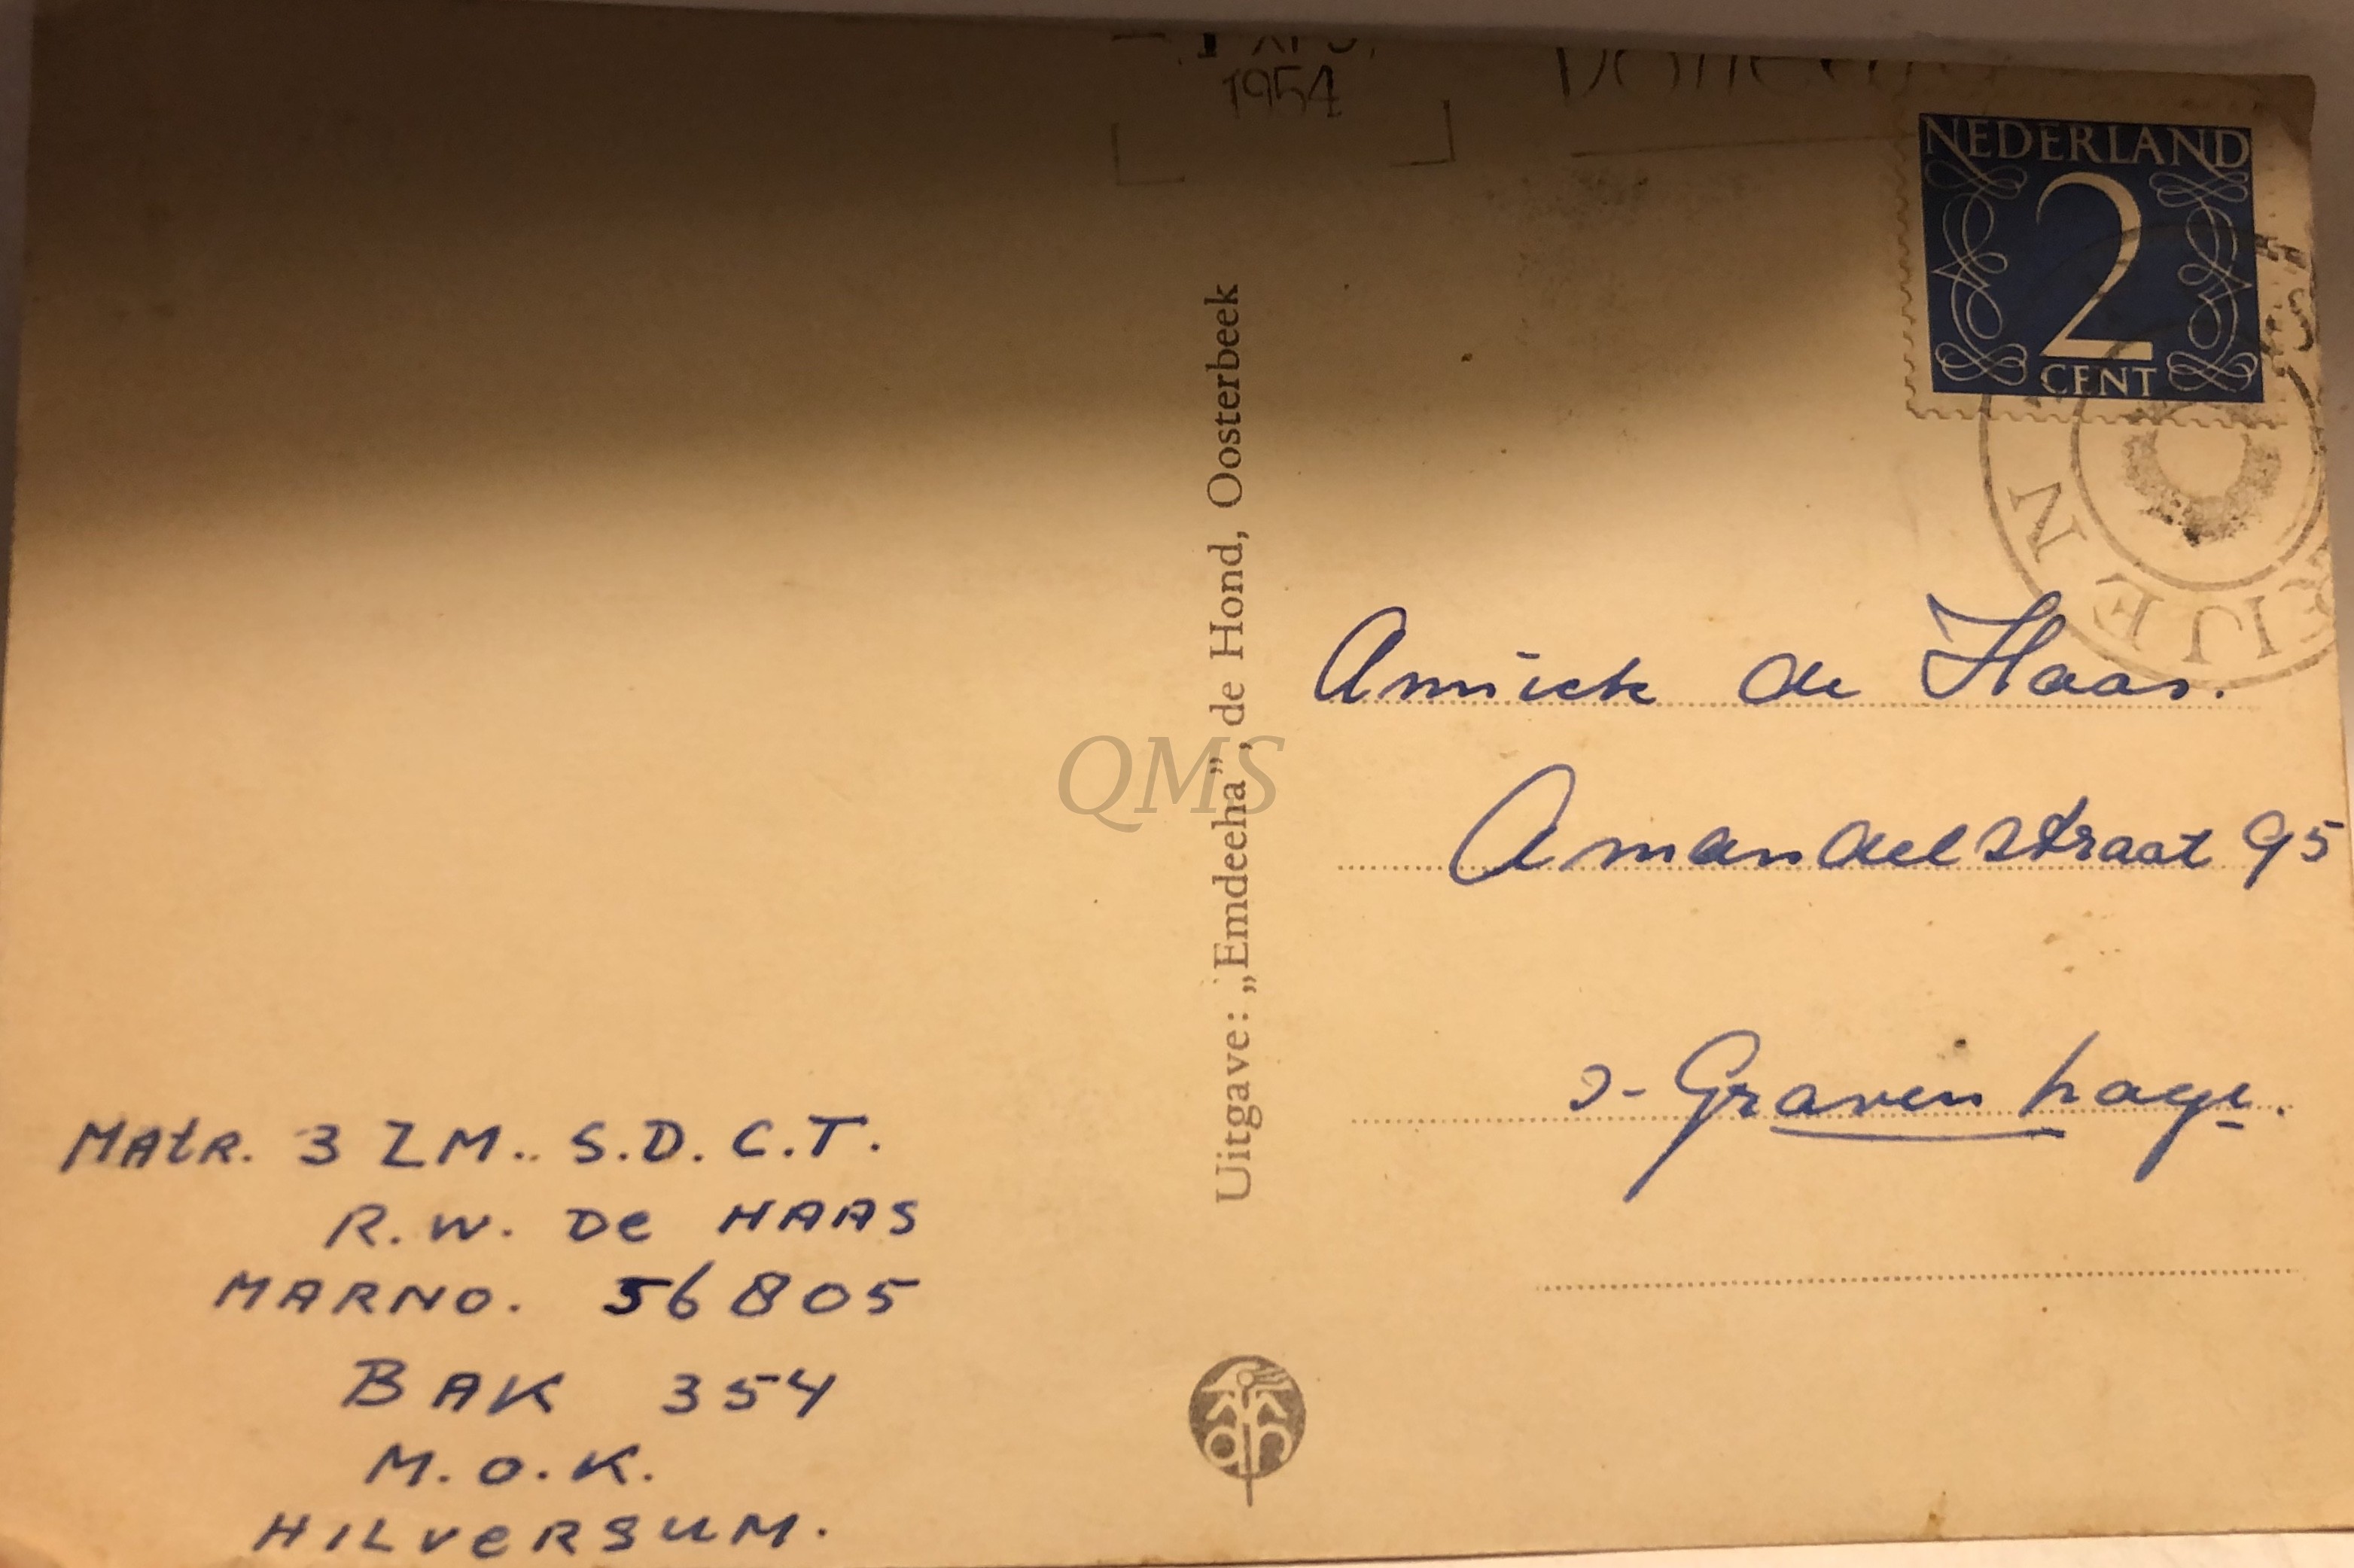 1954
NEDERLAND
2
CENT
Uitgave: „Emdeeha”, de Hond, Oosterbeek
QMS
Anniek de Haas.
Amandelstraat 95
s-Gravenhage.
Matr. 3 ZM. S.D.C.T.
R.W. De HAAS
MARNO. 56805
BAK 354
M.O.K.
HILVeRSUM.